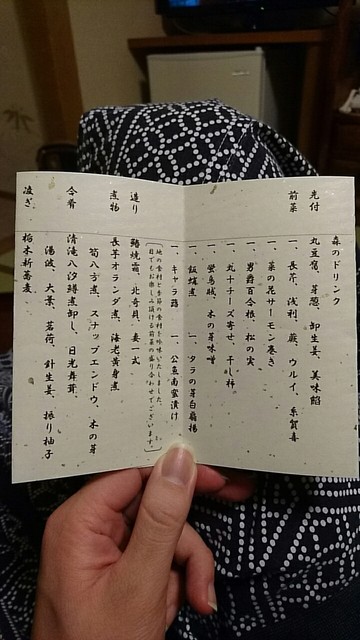 森のドリンク
先付 丸豆腐、芽葱、卸生姜、美味餡
前菜 一、長芹、浅利、蕨、ウルイ、糸賀喜
一、菜の花サーモン巻き
一、男爵百合根、松の実
一、丸十チーズ寄せ、干し柿
一、蛍烏賊、木の芽味噌
一、飯蛸煮 一、タラの芽白扇揚
一、キャラ蕗 一、公魚南蛮漬け
地の食材と季節の食材を吟味いたしました、
目でもお楽しみ頂ける前菜の盛り合わせでございます。
造り 鰆焼霜、北寄貝、妻一式
煮物 長芋オランダ煮、海老黄身煮
筍八方煮、スナップエンドウ、木の芽
合肴 清滝八汐鱒煮卸し、日光舞茸、
湯波、大葉、茗荷、針生姜、振り柚子
凌ぎ 栃木新蕎麦